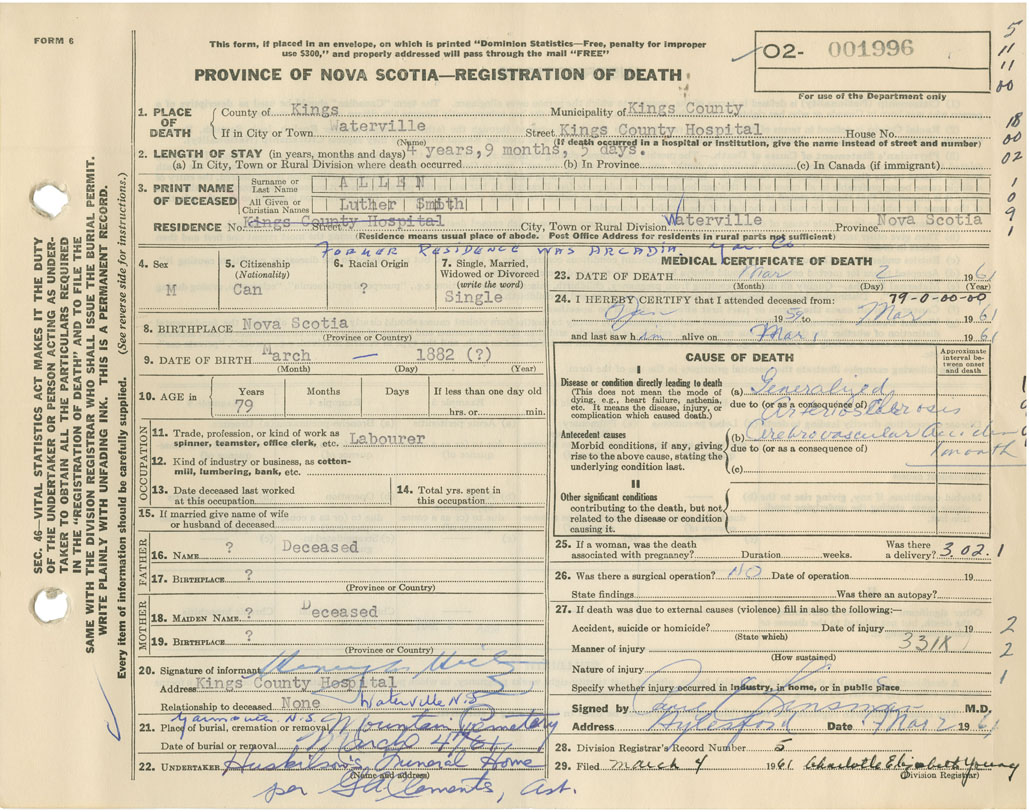 FORM 6
This form, if placed in an envelope, on which is printed "Dominion Statistics—Free, penalty for improper
use $300," and properly addressed will pass through the mail "FREE"
02- 001996
For use of the Department only
PROVINCE OF NOVA SCOTIA—REGISTRATION OF DEATH
5
11
11
00
18
00
02
1
0
9
1
SEC. 46—VITAL STATISTICS ACT MAKES IT THE DUTY
OF THE UNDERTAKER OR PERSON ACTING AS UNDER-
TAKER TO OBTAIN ALL THE PARTICULARS REQUIRED
IN THE "REGISTRATION OF DEATH" AND TO FILE THE
SAME WITH THE DIVISION REGISTRAR WHO SHALL ISSUE THE BURIAL PERMIT.
WRITE PLAINLY WITH UNFADING INK. THIS IS A PERMANENT RECORD.
Every item of information should be carefully supplied. (See reverse side for instructions.)
1. PLACE OF DEATH
County of Kings Municipality of Kings County
If in City or Town Waterville Street Kings County Hospital House No.
(Name) (If death occurred in a hospital or institution, give the name instead of street and number)
2. LENGTH OF STAY (in years, months and days) 4 years, 9 months, 5 days.
(a) In City, Town or Rural Division where death occurred (b) In Province (c) In Canada (if immigrant)
3. PRINT NAME OF DECEASED
Surname or Last Name ALLEN
All Given or Christian Names Luther Smith
RESIDENCE No. Kings County Hospital Street City, Town or Rural Division Waterville Province Nova Scotia
(Residence means usual place of abode. Post Office Address for residents in rural parts not sufficient)
FORMER RESIDENCE WAS ARCADIA Yar. Co
4. Sex
M
5. Citizenship
(Nationality)
Can
6. Racial Origin
?
7. Single, Married,
Widowed or Divorced
(write the word)
Single
8. BIRTHPLACE Nova Scotia
(Province or Country)
9. DATE OF BIRTH March — 1882 (?)
(Month) (Day) (Year)
10. AGE in
Years Months Days If less than one day old
79 hrs. or min.
OCCUPATION
11. Trade, profession, or kind of work as
spinner, teamster, office clerk, etc. Labourer
12. Kind of industry or business, as cotton-
mill, lumbering, bank, etc.
13. Date deceased last worked
at this occupation
14. Total yrs. spent in
this occupation
15. If married give name of wife
or husband of deceased
FATHER
16. NAME ? Deceased
17. BIRTHPLACE ?
(Province or Country)
MOTHER
18. MAIDEN NAME ? Deceased
19. BIRTHPLACE ?
(Province or Country)
20. Signature of informant
Address Kings County Hospital
Waterville N.S
Relationship to deceased None
Yarmouth N.S.
21. Place of burial, cremation or removal Mountain Cemetery
Date of burial or removal March 4/61
22. UNDERTAKER Huskilson's Funeral Home
(Name and address)
per G A Clements, Ast.
MEDICAL CERTIFICATE OF DEATH
23. DATE OF DEATH Mar 2 1961
(Month) (Day) (Year)
79-0-00-00
24. I HEREBY CERTIFY that I attended deceased from:
Jan 1959 to Mar 1961
and last saw him alive on Mar 1 1961
CAUSE OF DEATH
Approximate interval between onset and death
I
Disease or condition directly leading to death
(This does not mean the mode of
dying, e.g., heart failure, asthenia,
etc. It means the disease, injury, or
complication which caused death.)
(a) Generalized
due to (or as a consequence of)
Arteriosclerosis
Antecedent causes
Morbid conditions, if any, giving
rise to the above cause, stating the
underlying condition last.
(b) Cerebrovascular Accident
due to (or as a consequence of)
1 month
(c)
II
Other significant conditions
contributing to the death, but not
related to the disease or condition
causing it.
25. If a woman, was the death Was there
associated with pregnancy? Duration weeks. a delivery? 3.02.1
26. Was there a surgical operation? NO Date of operation 19
State findings Was there an autopsy?
27. If death was due to external causes (violence) fill in also the following:—
Accident, suicide or homicide? Date of injury 19
(State which)
Manner of injury 331X
(How sustained)
Nature of injury
Specify whether injury occurred in industry, in home, or in public place
2
2
1
Signed by Kinsman M.D.
Address Aylesford Date Mar 2 1961
28. Division Registrar's Record Number 5
29. Filed March 4 1961 Charlotte Elizabeth Young
(Division Registrar)